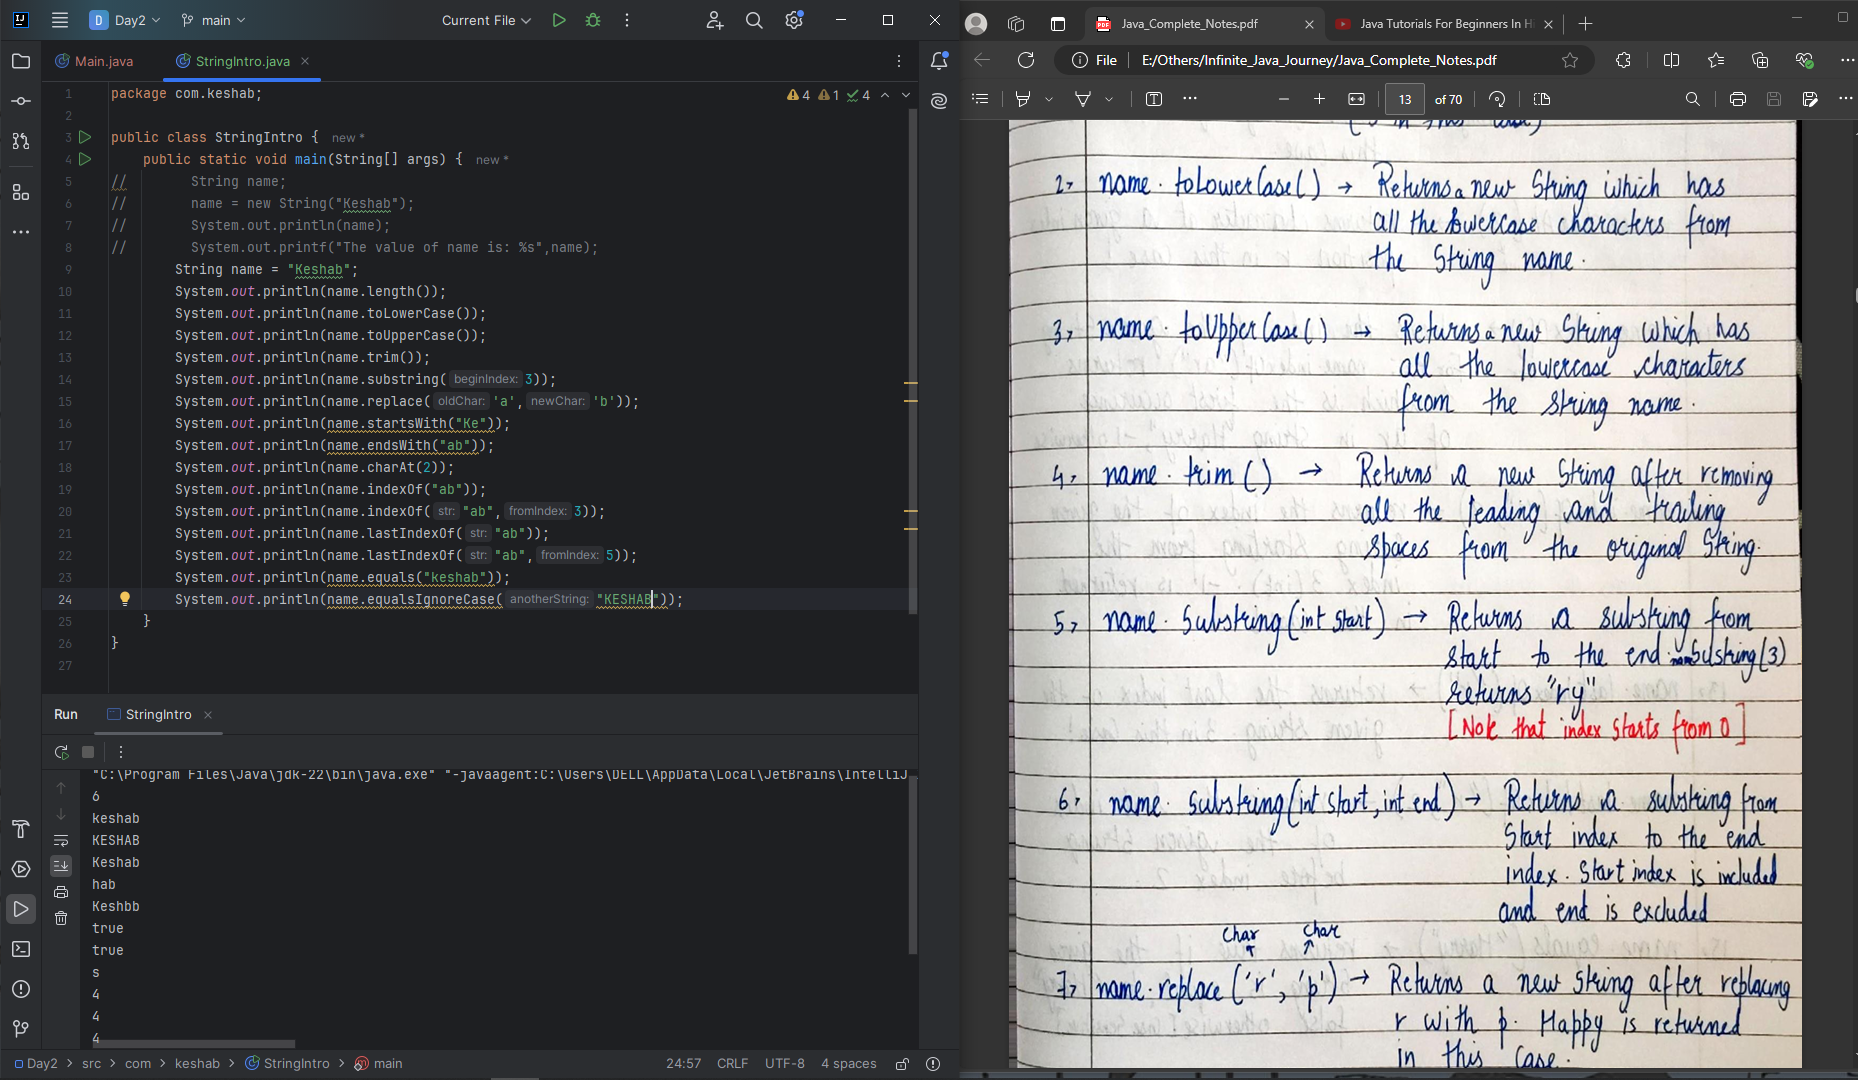 Day2
main
Current File
Main.java
StringIntro.java
4 1 4
1 package com.keshab;
2
3 public class StringIntro { new *
4 public static void main(String[] args) { new *
5 // String name;
6 // name = new String("Keshab");
7 // System.out.println(name);
8 // System.out.printf("The value of name is: %s",name);
9 String name = "Keshab";
10 System.out.println(name.length());
11 System.out.println(name.toLowerCase());
12 System.out.println(name.toUpperCase());
13 System.out.println(name.trim());
14 System.out.println(name.substring( beginIndex: 3));
15 System.out.println(name.replace( oldChar: 'a', newChar: 'b'));
16 System.out.println(name.startsWith("Ke"));
17 System.out.println(name.endsWith("ab"));
18 System.out.println(name.charAt(2));
19 System.out.println(name.indexOf("ab"));
20 System.out.println(name.indexOf( str: "ab", fromIndex: 3));
21 System.out.println(name.lastIndexOf( str: "ab"));
22 System.out.println(name.lastIndexOf( str: "ab", fromIndex: 5));
23 System.out.println(name.equals("keshab"));
24 System.out.println(name.equalsIgnoreCase( anotherString: "KESHAB"));
25 }
26 }
27
Run StringIntro
"C:\Program Files\Java\jdk-22\bin\java.exe" "-javaagent:C:\Users\DELL\AppData\Local\JetBrains\IntelliJ
6
keshab
KESHAB
Keshab
hab
Keshbb
true
true
s
4
4
4
Day2 > src > com > keshab > StringIntro > main
24:57 CRLF UTF-8 4 spaces
Java_Complete_Notes.pdf
Java Tutorials For Beginners In H
File E:/Others/Infinite_Java_Journey/Java_Complete_Notes.pdf
13 of 70
2, name. toLowerCase() → Returns a new String which has
all the lowercase characters from
the String name.
3, name. toUpperCase() → Returns a new String which has
all the lowercase characters
from the string name.
4, name. trim () → Returns a new String after removing
all the leading and trailing
spaces from the original String.
5, name. Substring (int start) → Returns a substring from
start to the end. Substring(3)
returns "ry"
[Note that index starts from 0]
6, name. substring (int start, int end) → Returns a substring from
Start index to the end
index. Start index is included
and end is excluded
char char
7, name.replace ('r', 'p') → Returns a new string after replacing
r with p. Happy is returned
in this case.